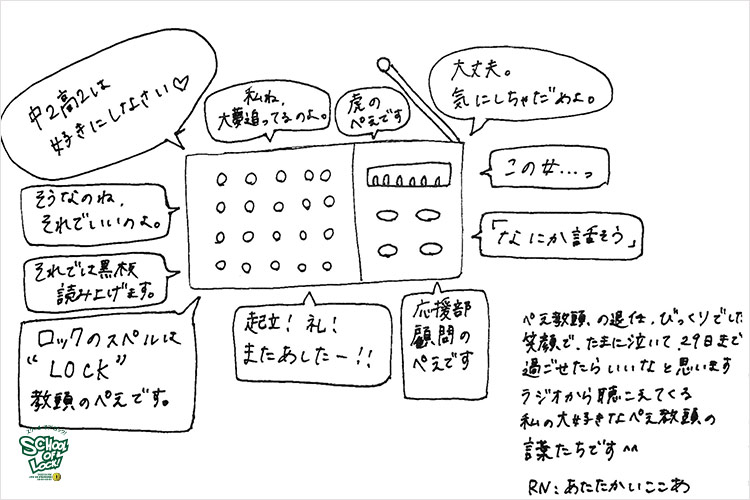 中2高2は
好きにしなさい♡
私ね、
大夢追ってるのよ。
虎の
ぺえです
大丈夫。
気にしちゃだめよ。
そうなのね、
それでいいのよ。
この女…っ
「なにか話そう」
それでは黒板
読み上げます。
ロックのスペルは
“LOCK”
教頭のぺえです。
起立！礼！
またあしたー！！
応援部
顧問の
ぺえです
ぺえ教頭、の退任、びっくりでした
笑顔で、たまに泣いて、29日まで
過ごせたらいいなと思います
ラジオから聴こえてくる
私の大好きなぺえ教頭の
言葉たちです^^
RN：あたたかいここあ
SCHOOL
OF
LOCK!